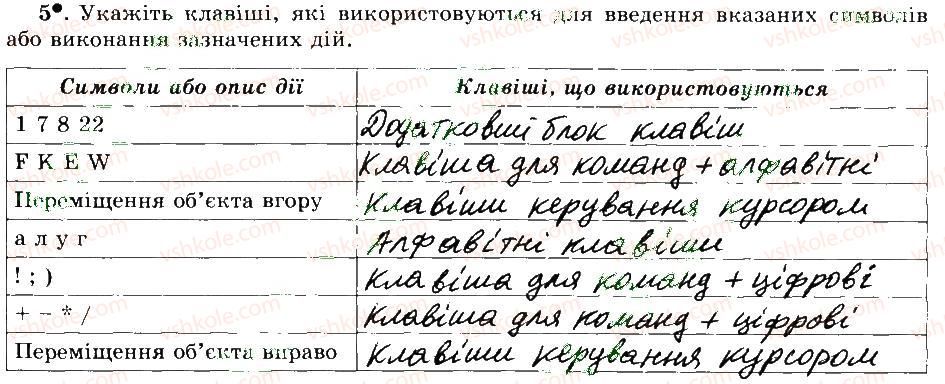 5•. Укажіть клавіші, які використовуються для введення вказаних символів
або виконання зазначених дій.
Символи або опис дії Клавіші, що використовуються
1 7 8 22 Додатковий блок клавіш
F K E W Клавіша для команд + алфавітні
Переміщення об'єкта вгору Клавіши керування курсором
а л у г Алфавітні клавіши
! ; ) Клавіша для команд + ціфрові
+ – * / Клавіша для команд + ціфрові
Переміщення об'єкта вправо Клавіши керування курсором